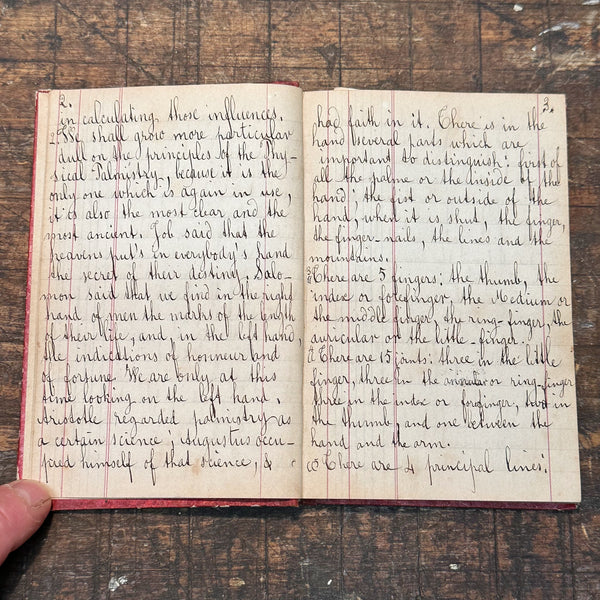 2.
in calculating those influences.
We shall grow more particular
dull on the principles of the Phy-
sical Palmistry, because it is the
only one which is again in use,
it is also the most clear and the
most ancient. Job said that the
heavens put's in everybody's hand
the secret of their destiny. Salo-
mon said that we find in the right
hand of men the marks of the length
of their life, and, in the left hand,
the indications of honneur and
of fortune. We are only, at this
time looking on the left hand.
Aristotle regarded palmistry as
a certain science; Augustus occu-
pied himself of that science, &
3.
had faith in it. There is in the
hand several parts which are
important to distinguish: first of
all the palme or the inside of the
hand; the fist or outside of the
hand, when it is shut, the finger,
the finger-nails, the lines and the
mountains.
There are 5 fingers: the thumb, the
index or forefinger, the Medium or
the middle finger, the ring-finger, the
auricular or the little-finger.
There are 15 joints: three in the little
finger, three in the annular or ring-finger
three in the index or forefinger, two in
the thumb, and one between the
hand and the arm.
There are 4 principal lines: